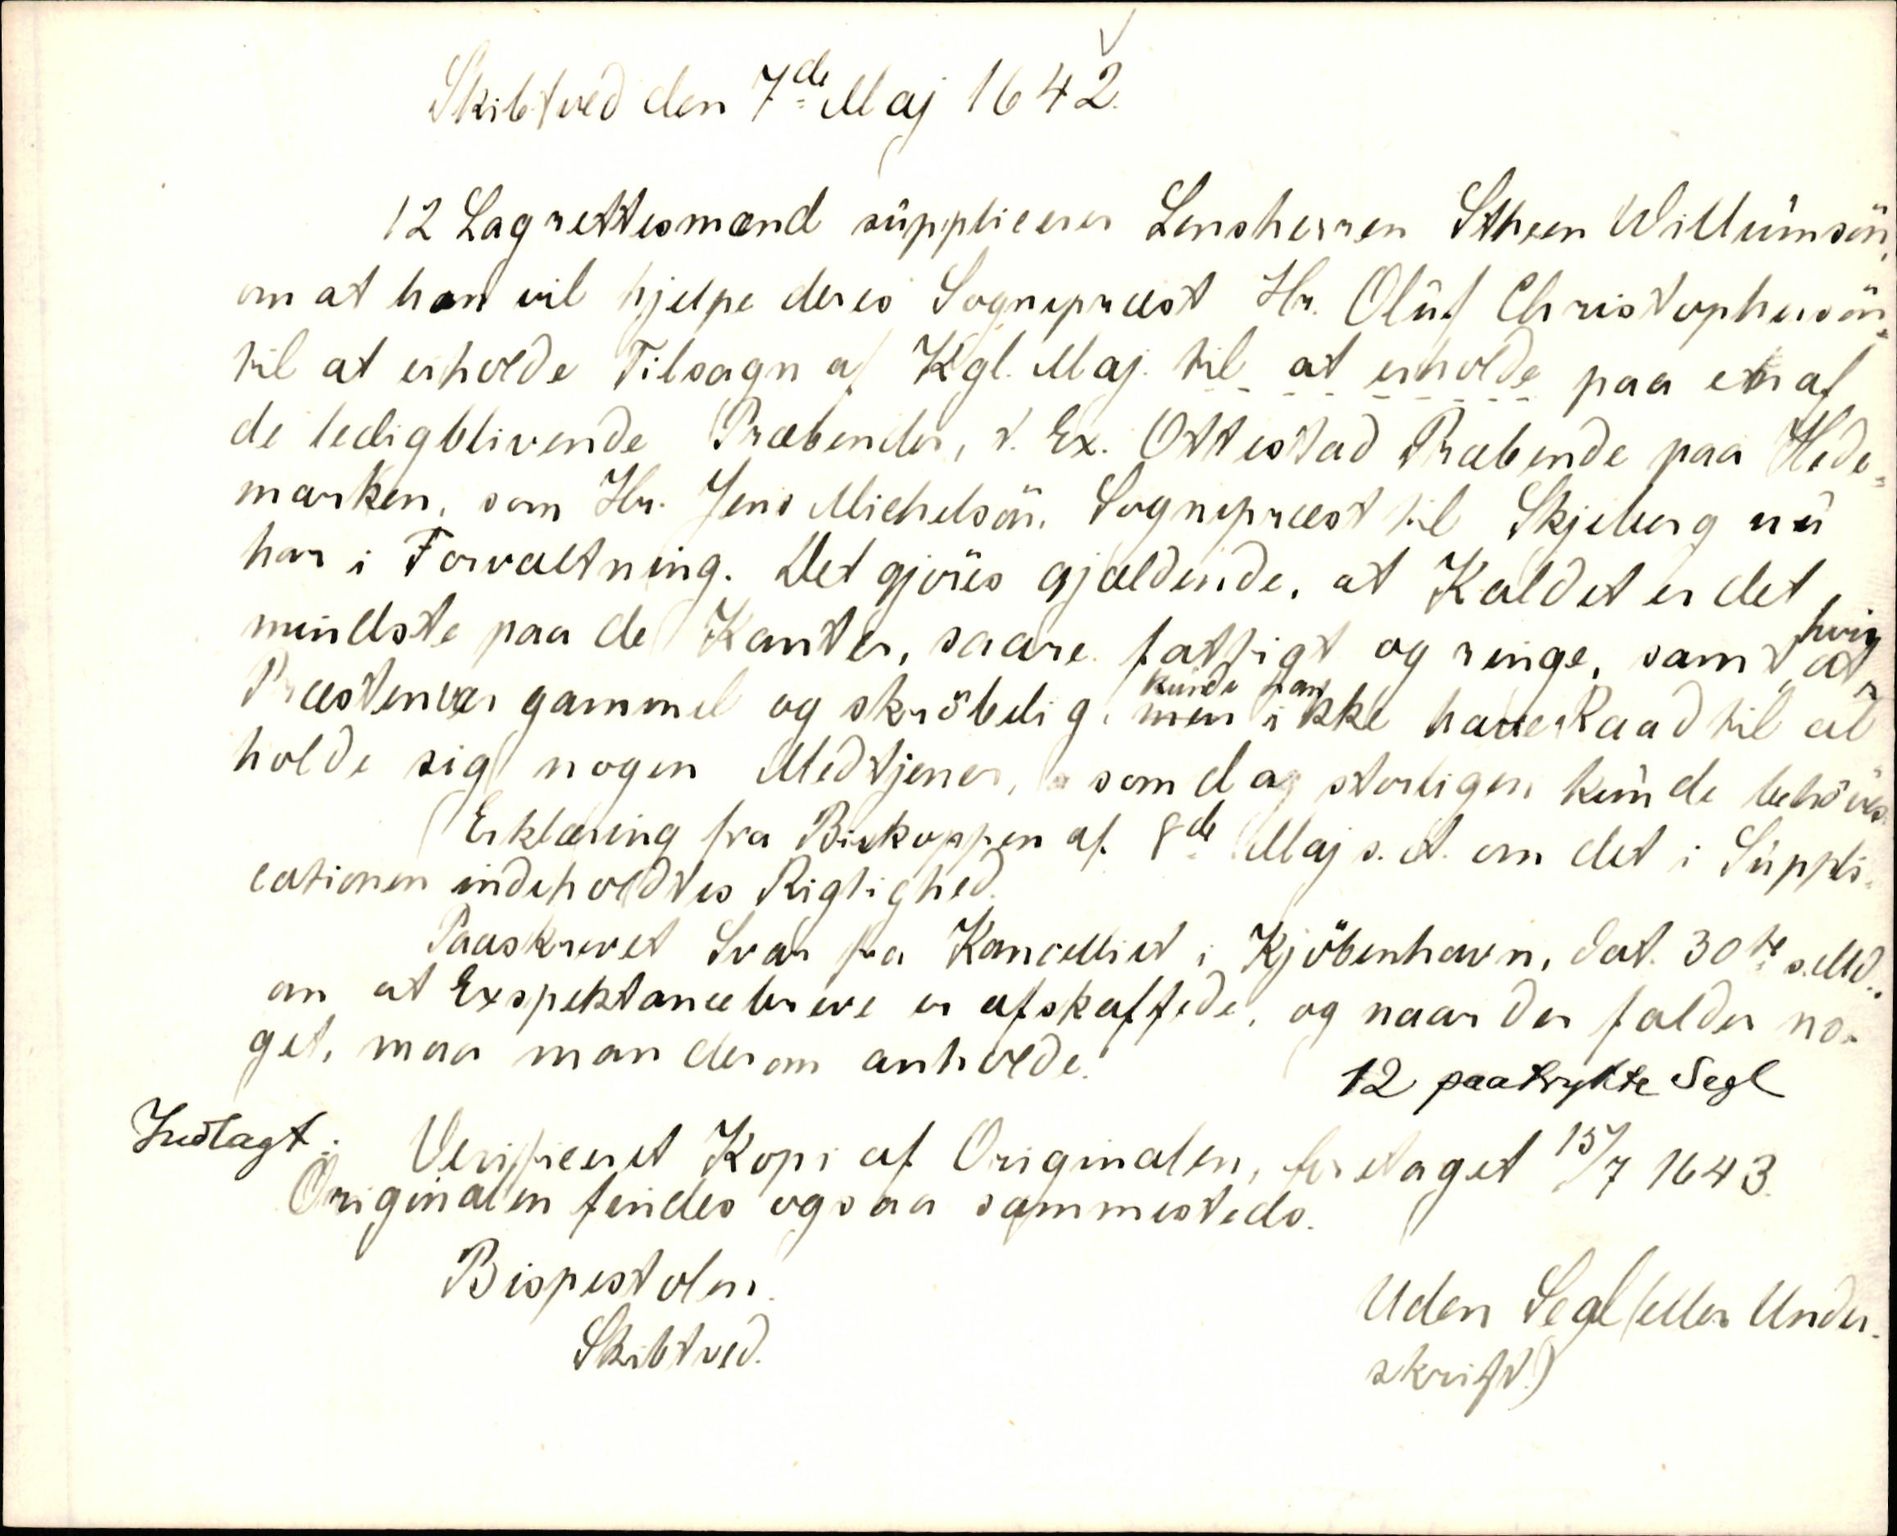 Skibtved den 7de Maj 1642.
12 Lagrettesmænd süpplicerer Lensherren Stheen Willümsön,
om at han vil hjelpe deres Sognepræst Hr. Olüf Christophersön
til at erholde Tilsagn af Kgl. Maj. til at erholde paa en af
de ledigblivende Præbender, t. Ex. Ottestad Præbende paa Hede-
marken, som Hr. Jens Michelsön, Sognepræst til Skjeberg nü
har i Forvaltning. Det gjöres gjældende, at Kaldet er det
mindste paa de Kanter, saare fattigt og ringe, samt at, hvis
Præsten var gammel og skröbelig, kunde han ikke have Raad til at
holde sig nogen Medtjener, som dog storligen künde behöves.
Erklæring fra Biskoppen af 8de Maj s. A. om det i Süppli-
cationen indeholdtes Rigtighed.
Paaskrevet Svar fra Kancelliet i Kjöbenhavn, dat. 30te s. Md.,
om at Exspektancebreve er afskaffede, og naar der falder no-
get, maa man derom anholde.
12 paatrykte Segl
Indlagt: Verificeret Kopi af Originalen, foretaget 15/7 1643.
Originalen findes ogsaa sammesteds.
Bispestolen.
Skibtved.
Uden Segl (eller Under-
skrift.)